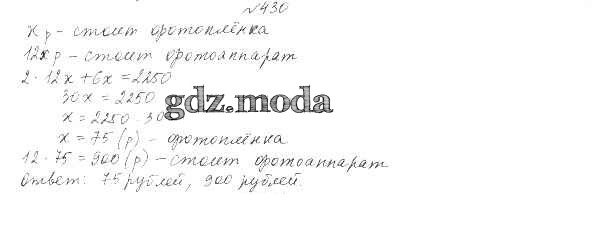 №430
x р - стоит фотоплёнка
12x р - стоит фотоаппарат
2 · 12x + 6x = 2250
30x = 2250
gdz.moda
x = 2250 : 30
x = 75 (р) - фотоплёнка
12 · 75 = 900 (р) - стоит фотоаппарат
ответ: 75 рублей, 900 рублей.